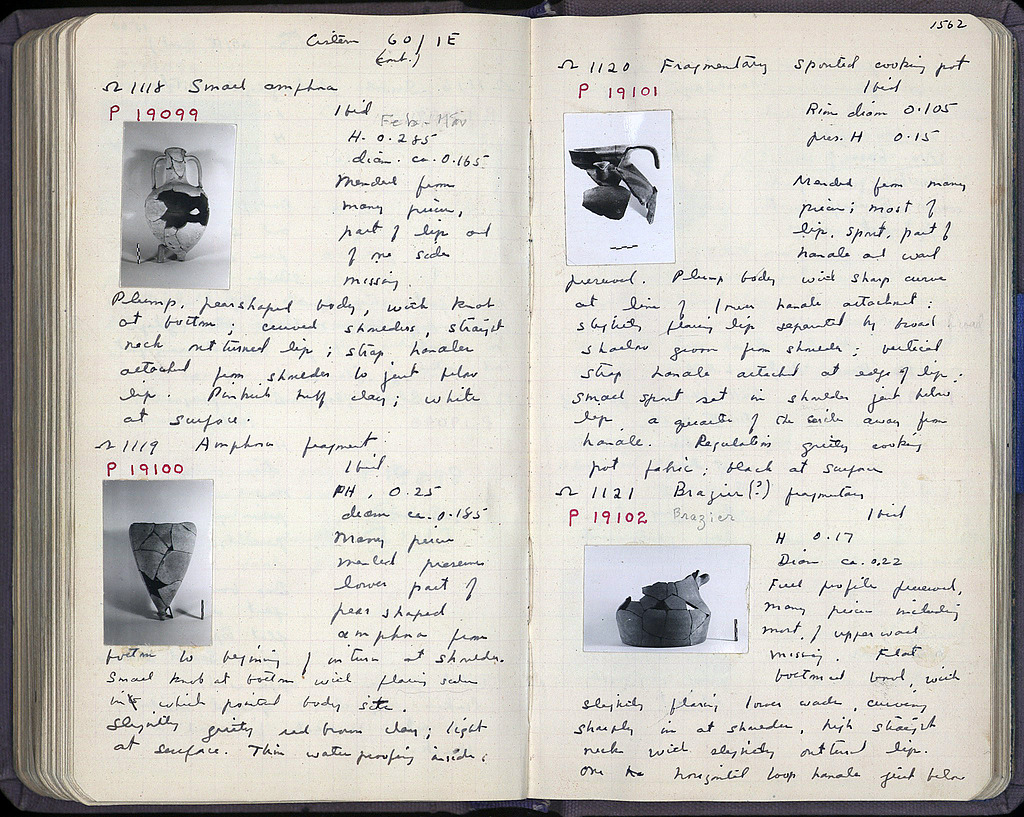 Cistern 60/1E
(cont.)
Ω 1118 Small amphora
P 19099
Ibid
Feb - Mar
H. 0.285
diam. ca. 0.165
Mended from
many pieces,
part of lip and
of one side
missing.
Plump, pearshaped body, with knob
at bottom; curved shoulders, straight
neck outturned lip; strap handles
attached from shoulder to just below
lip. Pinkish buff clay; white
at surface.
Ω 1119 Amphora fragment
P 19100
Ibid.
PH. 0.25
diam ca. 0.185
Many pieces
mended preserve
lower part of
pear shaped
amphora from
bottom to begining of inturn at shoulder.
Small knob at bottom with flaring sides
into which pointed body sits.
Slightly gritty red brown clay; light
at surface. Thin waterproofing inside.
1562
Ω 1120 Fragmentary spouted cooking pot
P 19101
Ibid
Rim diam 0.105
pres. H 0.15
Mended from many
pieces; most of
lip, spout, part of
handle and wall
preserved. Plump body with sharp curve
at line of lower handle attachment;
slightly flaring lip separated by broad
shallow groove from shoulder; vertical
strap handle attached at edge of lip;
small spout set in shoulder just below
lip, a quarter of the circle away from
handle. Regulation gritty cooking
pot fabric; black at surface
Ω 1121 Brazier(?) fragmentary
P 19102 Brazier
Ibid
H 0.17
Diam ca. 0.22
Full profile preserved,
many pieces including
most of upper wall
missing. Flat
bottomed bowl, with
slightly flaring lower walls, curving
sharply in at shoulder, high straight
neck with slightly outturned lip.
One horizontal loop handle just below